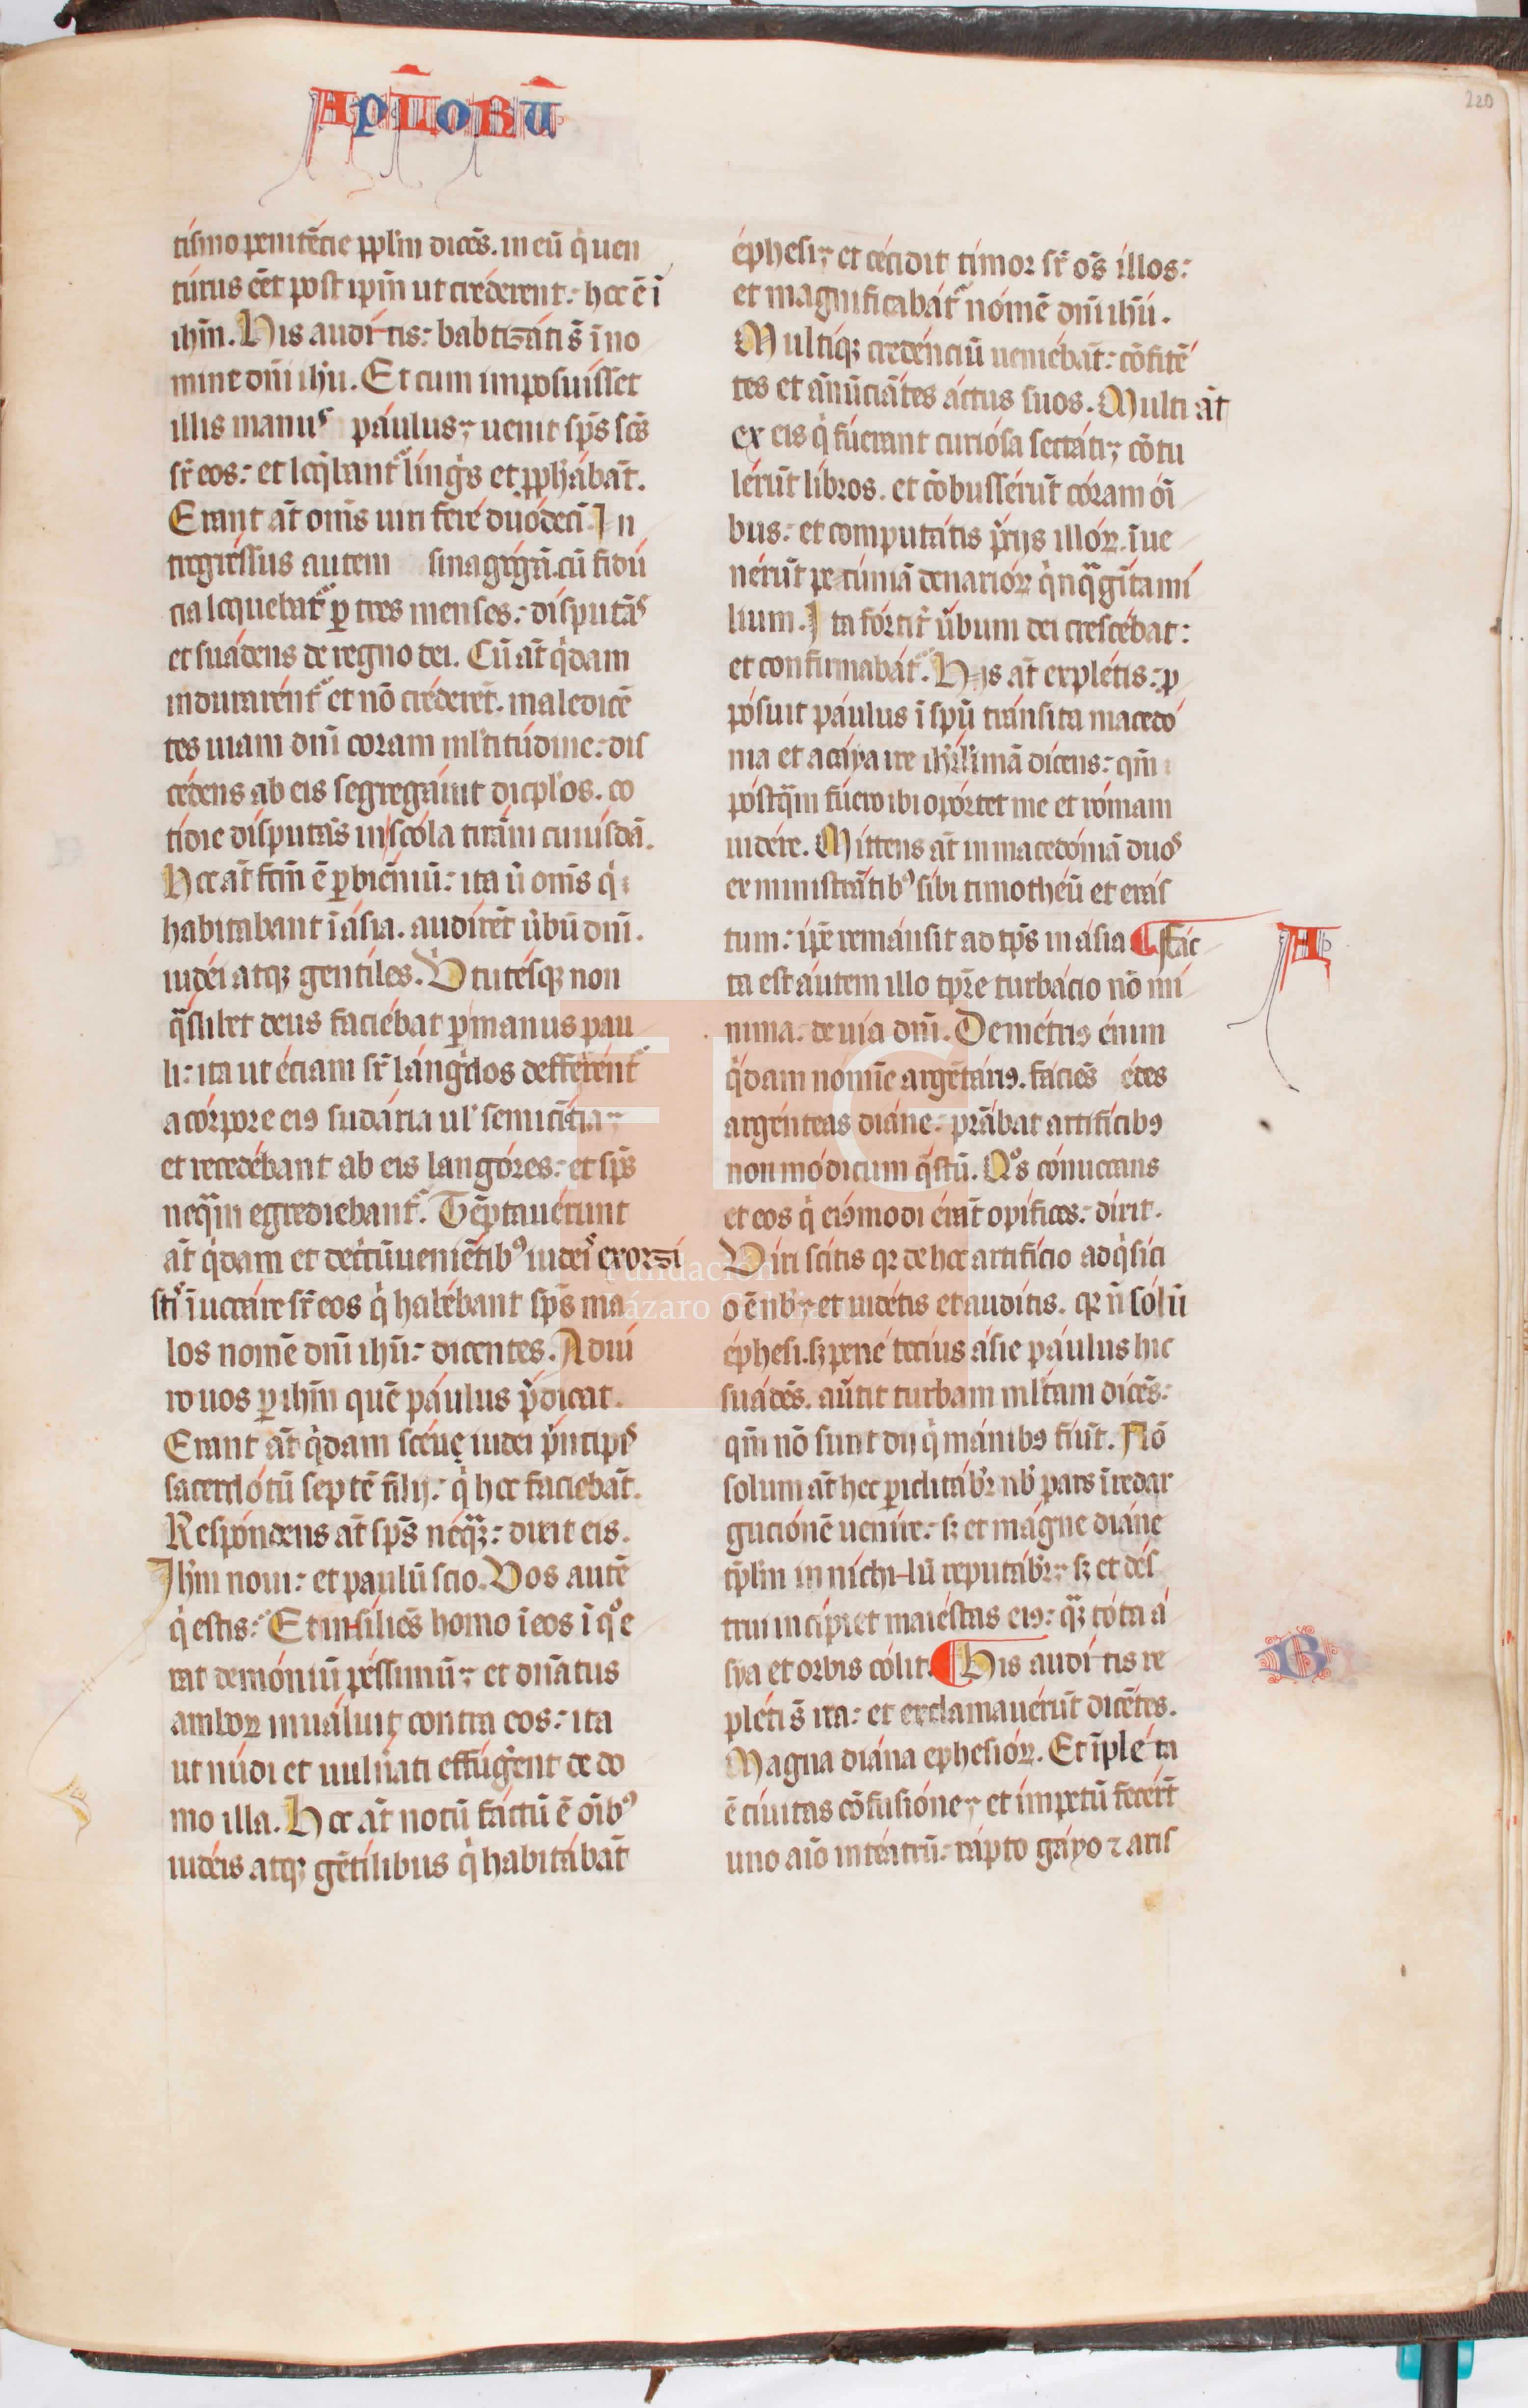 220
Apl̄oRū
tismo penitẽcie pp̄lm dicẽs. in eũ q̇ uen
túrus eẽt post ip̄m ut créderent: hoc ẽ ĩ
ihm̄. His auditis: babtizáti s̃ ĩ no
mine dnĩ ihu̅. Et cum imposuisset
illis manus paulus; uenit sp̄s sc̄s
sr̄ eos: et loq̄bant᷑ lingi̇s et pp̄hábãt.
Erant at̃ omĩs uiri feré duódeci̅. In
tregréssus autem sinagógã. cũ fidú
cia loquebat᷑ ꝑ tres menses: disputãs
et suádens de regno dei. Cũ at̃ q̇dam
indurarént᷑ et nõ créderẽt. maledicẽ
tes uiam dnĩ coram ml̃titúdine: dis
cédens ab eis segregáuit dicpl̃os. co
tidie disputãs in scola tirãni cuiúsdã.
Hoc at̃ fcm̃ ẽ ꝑ biẽniũ: ita ũ omĩs q̇
habitabant ĩ ásia. audirẽt ũbũ dnĩ.
iudéi atqꝫ gentiles. Vtutésqꝫ non
q̃slibet deus faciébat ꝑ manus pau
li: ita ut étiam sr̄ lángi̇dos defferént᷑
a córpore eiꝯ sudária ul̃ semicítia;
et recedébant ab eis langóres: et sp̄s
neq̃m egrediebant᷑. Tẽptauérunt
at̃ q̇dam et de ci̇cũueniẽtibꝰ iudeis exorzi
stis ĩuocáre sr̄ eos q̇ habébant sp̄s ma
los nomẽ dnĩ ihũ: dicentes. Adiú
ro uos ꝑ ihm̄ quẽ páulus p̃dicat.
Erant at̃ q̇dam scéuę iudei p̃ncipis
sacerdótũ septẽ filij: q̇ hoc faciebãt.
Respóndens at̃ sp̄s néqꝫ: dixit eis.
Ihm̄ noui: et paulũ scio. Vos autẽ
q̇ estis: Et insiliẽs homo ĩ eos ĩ qͦ e
rat demóniũ péssimũ; et dñatus
amborꝝ inuáluit contra eos: ita
ut núdi et uulñati effúgẽnt de do
mo illa. Hoc at̃ notũ factũ ẽ oĩbꝰ
iudéis atqꝫ gẽtílibus q̇ habitábãt
éphesi; et cécidit timor sr̄ oẽs illos:
et magnificabát᷑ nómẽ dnĩ ihũ.
Multiqꝫ credénciũ ueniébãt: cõfitẽ
tes et añũciãtes áctus suos. Multi at̃
ex eis q̇ fúerant curiósa sectáti; cõtu
lérũt libros. et cõbussérũt córam oĩ
bus: et computátis p̃cijs illórꝝ. ĩue
nérũt pecúniã denariórꝝ qi̇nqᷓgĩta mi
lium. Ita fórtit̃ ũbum dei crescébat:
et confirmabát᷑. Hijs at̃ explétis: ꝓ
pósuit páulus ĩ spũ tránsita macedó
nia et acáya ire ihrlimã dicens: qm̃
póstq̃m fúero ibi opórtet me et rómam
uidére. Mittens at̃ in macedóniã duos
ex ministrãtibꝰ sibi timothéũ et erás
tum: ip̃e remánsit ad tp̃s in ásia. ¶ Fác
ta est áutem illo tp̃re turbácio nõ mí
nima. de uia dnĩ. Demétriꝯ énim
q̇dam nómĩe argẽtáriꝯ. fáciẽs édes
argénteas diáne: p̃stãbat artificibꝯ
non módicum q̃stũ. Qͦs cónuocans
et eos q̇ eiꝯmodi érãt opifices: dixit.
Viri scitis qꝛ de hoc artificio adq̇síci
o ẽ nb̃; et uidétis et audítis. qꝛ ñ sólũ
éphesi. sꝫ pené tocíus ásie páulus hic
suádẽs. aũtit turbam ml̃tam dicẽs:
qm̃ nõ sunt dij q̇ mánibꝯ fiũt. Nõ
solum at̃ hec ꝑiclitábr̃ nb̃ pars ĩredar
guciónẽ uenire: sꝫ et mágne diáne
tp̃lm in níchilũ reputábr̃; sꝫ et dés
trui incípiet maiéstas eiꝯ: qᷓꝫ tóta á
sya et orbis cólit. ¶ His auditis re
pléti s̃ ira: et exclamauérũt dicẽtes.
Magna diána ephesiórꝝ. Et ĩpléta
ẽ ciuitas cõfusióne; et ímpetũ fecert̃
uno aĩo in teátrũ: rápto gáyo ⁊ aris
A
B
Fundación
Lázaro